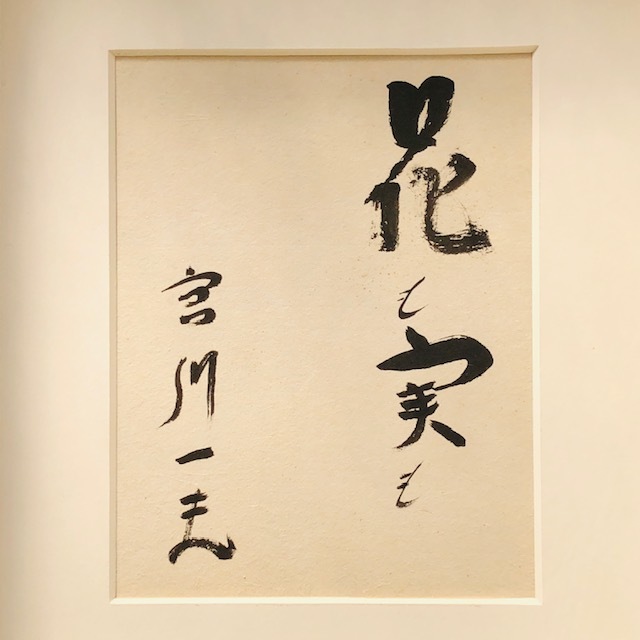 花も実も
宮川一夫